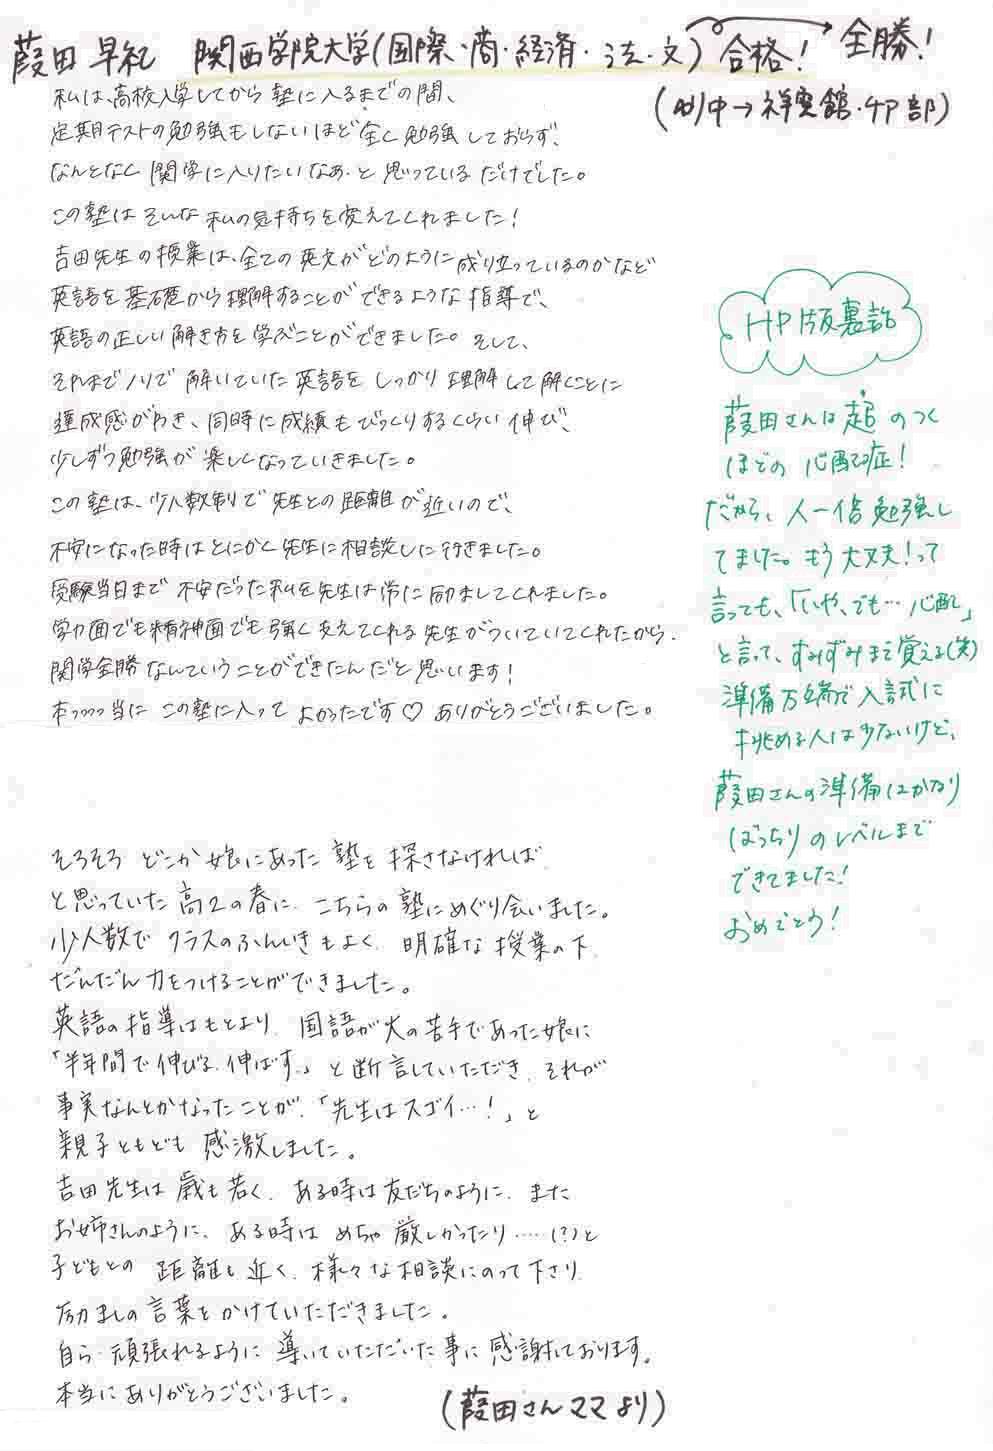 葭田 早紀 関西学院大学(国際・商・経済・法・文) 合格! 全勝!
中→祥雲館・ 部)
私は、高校入学してから塾に入るまでの間、
定期テストの勉強もしないほど全く勉強しておらず、
なんとなく関学に入りたいなぁ・と思っているだけでした。
この塾はそんな私の気持ちを変えてくれました!
吉田先生の授業は、全ての英文がどのように成り立っているのかなど
英語を基礎から理解することができるような指導で、
英語の正しい解き方を学ぶことができました。そして、
それまでノリで解いていた英語をしっかり理解して解くことに
達成感がわき、同時に成績もびっくりするくらい伸び、
少しずつ勉強が楽しくなっていきました。
この塾は、少人数制で先生との距離が近いので、
不安になった時はとにかく先生に相談しに行きました。
受験当日まで不安だった私を先生は常に励ましてくれました。
学力面でも精神面でも強く支えてくれる先生がついていてくれたから、
関学全勝なんていうことができたんだと思います!
本っっっっ当にこの塾に入ってよかったです♡ ありがとうございました。
HP版裏話
葭田さんは超のつく
ほどの心配症!
だから、人一倍勉強し
てました。もう大丈夫!って
言っても、「いや、でも…心配」
と言って、すみずみまで覚える(笑)
準備万端で入試に
挑める人は少ないけど、
葭田さんの準備はかなり
ばっちりのレベルまで
できてました!
おめでとう!
そろそろどこか娘にあった塾を探さなければ
と思っていた高2の春に、こちらの塾にめぐり会いました。
少人数でクラスのふんいきもよく、明確な授業の下、
だんだん力をつけることができました。
英語の指導はもとより、国語が大の苦手であった娘に
「半年間で伸びる、伸ばす。」と断言していただき、それが
事実なんとかなったことが、「先生はスゴイ…!」と
親子ともども感激しました。
吉田先生は歳も若く、ある時は友だちのように、また
お姉さんのように、ある時はめちゃ厳しかったり……(?)と
子どもとの距離も近く、様々な相談にのって下さり、
励ましの言葉をかけていただきました。
自ら頑張れるように導いていただいた事に感謝しております。
本当にありがとうございました。
(葭田さんママより)